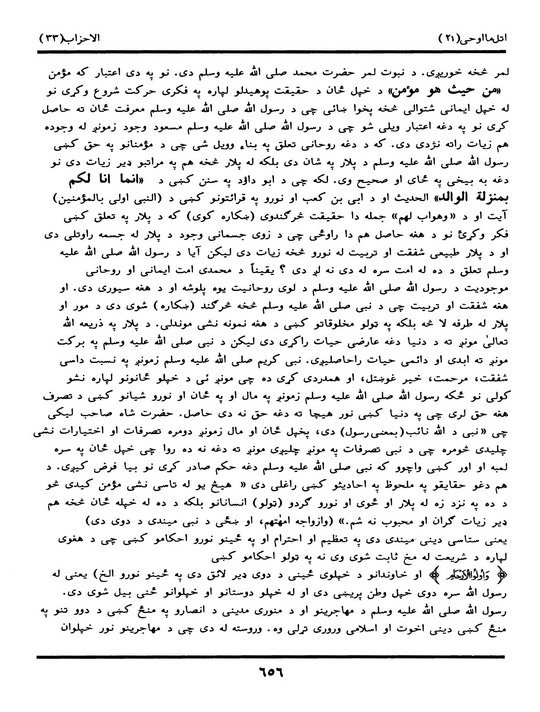 اتل ما اوحی (٢١)
الاحزاب (٣٣)
لمر څخه خوریږي. د نبوت لمر حضرت محمد صلی الله علیه وسلم دی. نو په دی اعتبار که مؤمن
«من حیث هو مؤمن» د خپل ځان د حقیقت پوهیدلو لپاره په فکری حرکت شروع وکړی نو
له خپل ایمانی شتوالی څخه پخوا ښائی چی د رسول الله صلی الله علیه وسلم معرفت ځان ته حاصل
کړی نو په دغه اعتبار ویلی شو چی د رسول الله صلی الله علیه وسلم مسعود وجود زمونږ له وجوده
هم زیات راته نژدی دی. که د دغه روحانی تعلق په بناء وویل شی چی د مؤمنانو په حق کښی
رسول الله صلی الله علیه وسلم د پلار په شان دی بلکه له پلار څخه هم په مراتبو ډیر زیات دی نو
دغه به بیخی په ځای او صحیح وی. لکه چی د ابو داؤد په سنن کښی د «انما انا لکم
بمنزلة الوالد» الحدیث او د ابی بن کعب او نورو په قرائتونو کښی د (النبی اولی بالمؤمنین)
آیت او د «وهواب لهم» جمله دا حقیقت څرګندوی (ښکاره کوی) که د پلار په تعلق کښی
فکر وکړئ نو د هغه حاصل هم دا راوځی چی د زوی جسمانی وجود د پلار له جسمه راوتلی دی
او د پلار طبیعی شفقت او تربیت له نورو څخه زیات دی لیکن آیا د رسول الله صلی الله علیه
وسلم تعلق د ده له امت سره له دی نه لږ دی ؟ یقیناً د محمدی امت ایمانی او روحانی
موجودیت د رسول الله صلی الله علیه وسلم د لوی روحانیت یوه پلوشه او د هغه سیوری دی. او
هغه شفقت او تربیت چی د نبی صلی الله علیه وسلم څخه څرګند (ښکاره) شوی دی د مور او
پلار له طرفه لا څه بلکه په ټولو مخلوقاتو کښی د هغه نمونه نشی موندلی. د پلار په ذریعه الله
تعالیٰ مونږ ته د دنیا دغه عارضی حیات راکړی دی لیکن د نبی صلی الله علیه وسلم په برکت
مونږ ته ابدی او دائمی حیات راحاصلیږی. نبی کریم صلی الله علیه وسلم زمونږ په نسبت داسی
شفقت، مرحمت، خیر غوښتل، او همدردی کړی ده چی مونږ ئی د خپلو ځانونو لپاره نشو
کولی نو ځکه رسول الله صلی الله علیه وسلم زمونږ په مال او په ځان او نورو شیانو کښی د تصرف
هغه حق لری چی په دنیا کښی نور هیچا ته دغه حق نه دی حاصل. حضرت شاه صاحب لیکی
چی «نبی د الله نائب (بمعنی رسول) دی، پخپل ځان او مال زمونږ دومره تصرفات او اختیارات نشی
چلیدی څومره چی د نبی تصرفات په مونږ چلیږی مونږ ته دغه نه ده روا چی خپل ځان په سره
لمبه او اور کښی واچوو که نبی صلی الله علیه وسلم دغه حکم صادر کړی نو بیا فرض کیږی. د
هم دغو حقایقو په ملحوظ په احادیثو کښی راغلی دی « هیڅ یو له تاسی نشی مؤمن کیدی څو
د ده په نزد زه له پلار او ځوی او نورو ګردو (ټولو) انسانانو بلکه د ده له خپله ځان څخه هم
ډیر زیات ګران او محبوب نه شم.» (وازواجه امهٰتهم، او ښځی د نبی میندی د دوی دی)
یعنی ستاسی دینی میندی دی په تعظیم او احترام او په ځینو نورو احکامو کښی چی د هغوی
لپاره د شریعت له مخ ثابت شوی وی نه په ټولو احکامو کښی
﴿ وَاُولُوا الْاَرْحَامِ ﴾ او خاوندانو د خپلوی ځینی د دوی ډیر لائق دی په ځینو نورو الخ) یعنی له
رسول الله سره دوی خپل وطن پریښی دی او له خپلو دوستانو او خپلوانو ځنی بیل شوی دی.
رسول الله صلی الله علیه وسلم د مهاجرینو او د منوری مدینی د انصارو په منځ کښی د دوو تنو په
منځ کښی دینی اخوت او اسلامی وروری تړلی وه. وروسته له دی چی د مهاجرینو نور خپلوان
٦٥٦